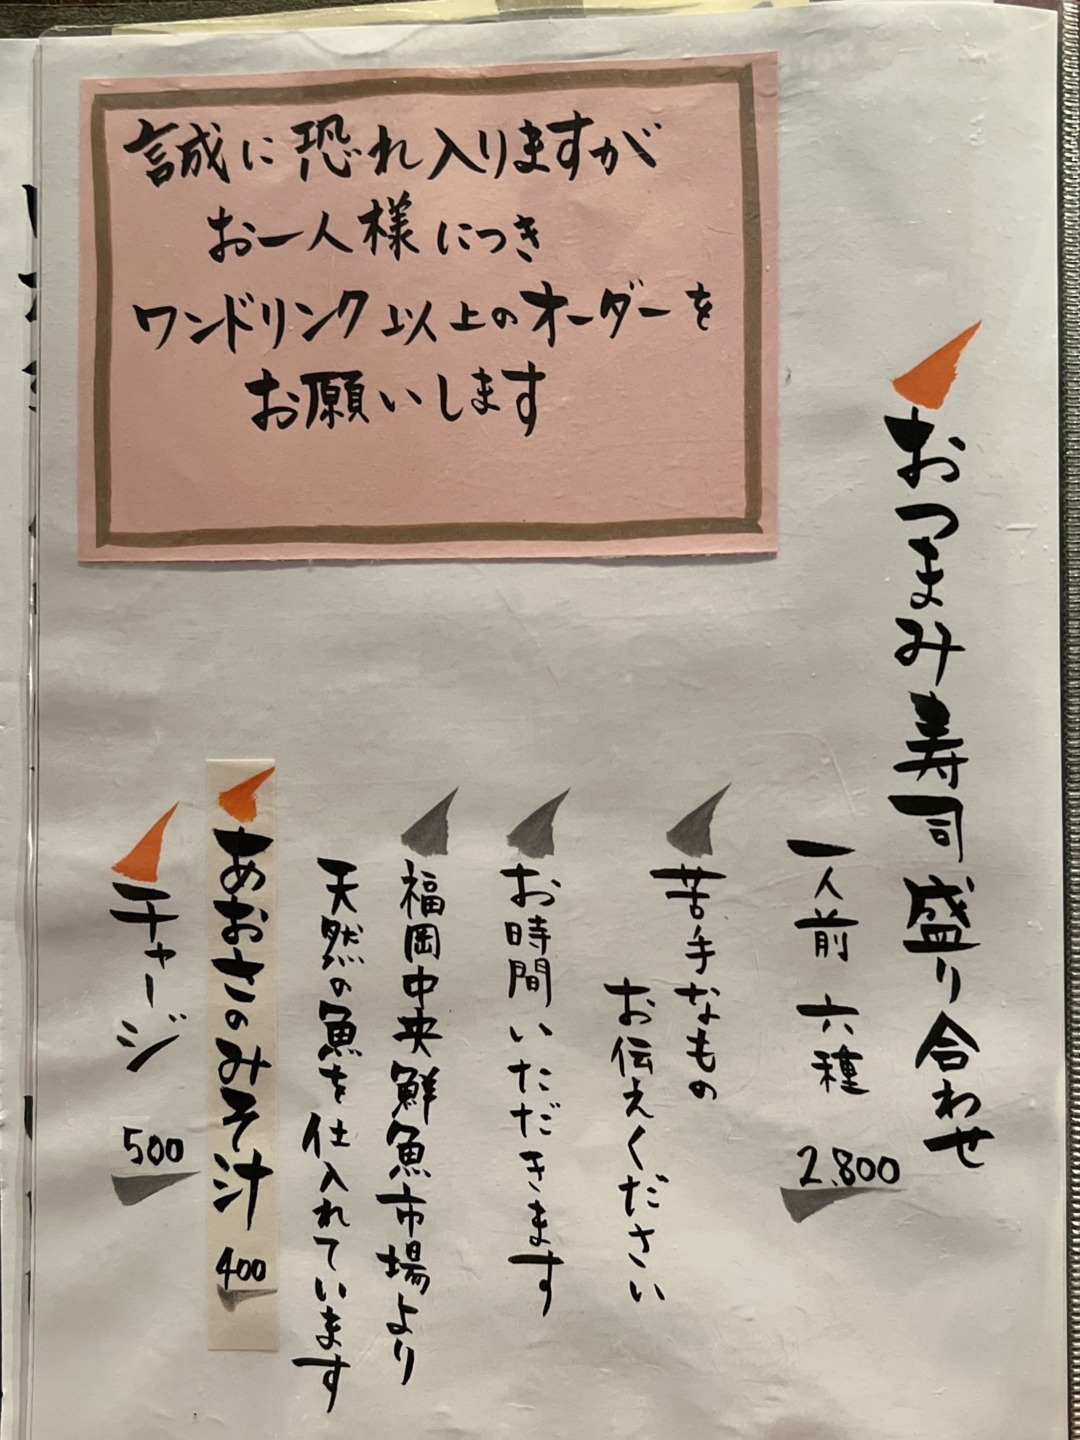 誠に恐れ入りますが
お一人様につき
ワンドリンク以上のオーダーを
お願いします
おつまみ寿司盛り合わせ
一人前 六種 2,800
苦手なもの
お伝えください
お時間いただきます
福岡中央鮮魚市場より
天然の魚を仕入れています
あおさのみそ汁 400
チャージ 500